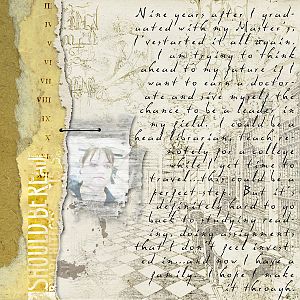 II
III
IV
V
VI
VII
VIII
IX
X
XI
SHOULD BE RE
Nine years after I grad-
uated with my Master's,
I restarted it all again.
I am trying to think
ahead to my future if I
want to earn a doctor-
ate and give myself the
chance to be a leader in
my field. I could be a
head librarian. Teach re-
motely for a college
while I get time to
travel...that could be a
perfect step. But it's
definitely hard to go
back to studying read-
ings, doing assignments
that I don't feel invest-
ed in...and now I have a
family. I hope I make
it through.